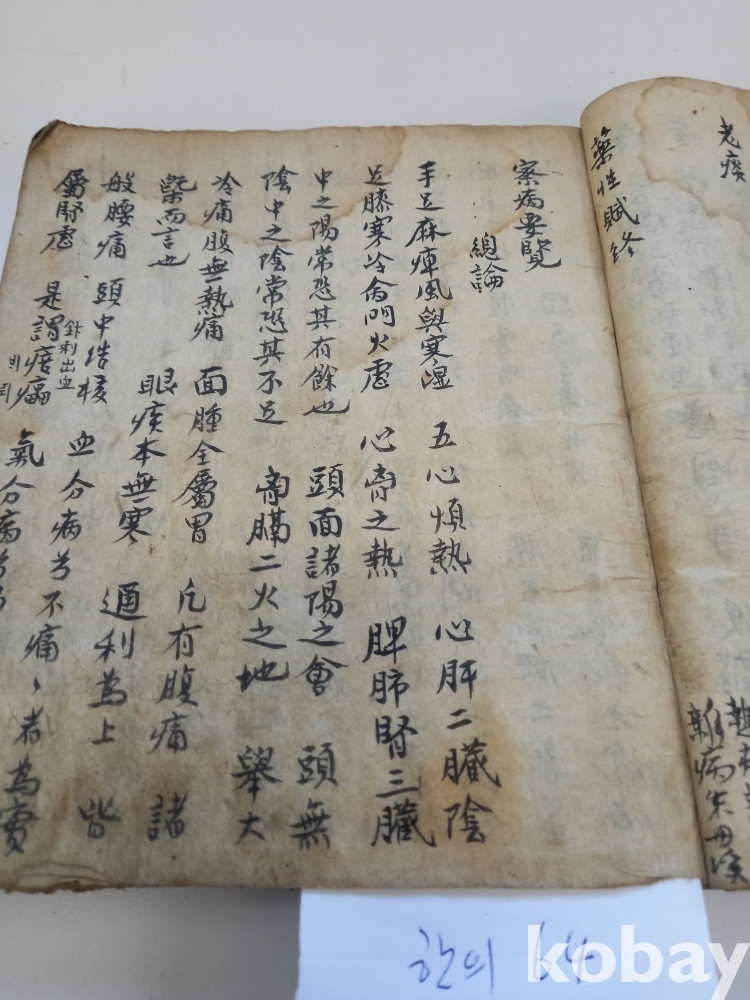 老痰
雜病朱丹溪
藥性賦終
察病要覽
總論
手足麻痺風與寒湿 五心煩熱 心肝二臟陰
足膝寒冷命門火虛 心膏之熱 脾肺腎三臟
中之陽常恐其有餘也 頭面諸陽之會 頭無
陰中之陰常恐其不足 膈二火之地 舉大
冷痛腹無熱痛 面腫全屬胃 凡有腹痛 諸
槩而言也 眼疾本無寒 通利為上 皆
般腰痛 頭中结核 血分病兮不痛〻者為實
針刺出血
屬腎虛 是謂 氣分病兮
한의 64
kobay